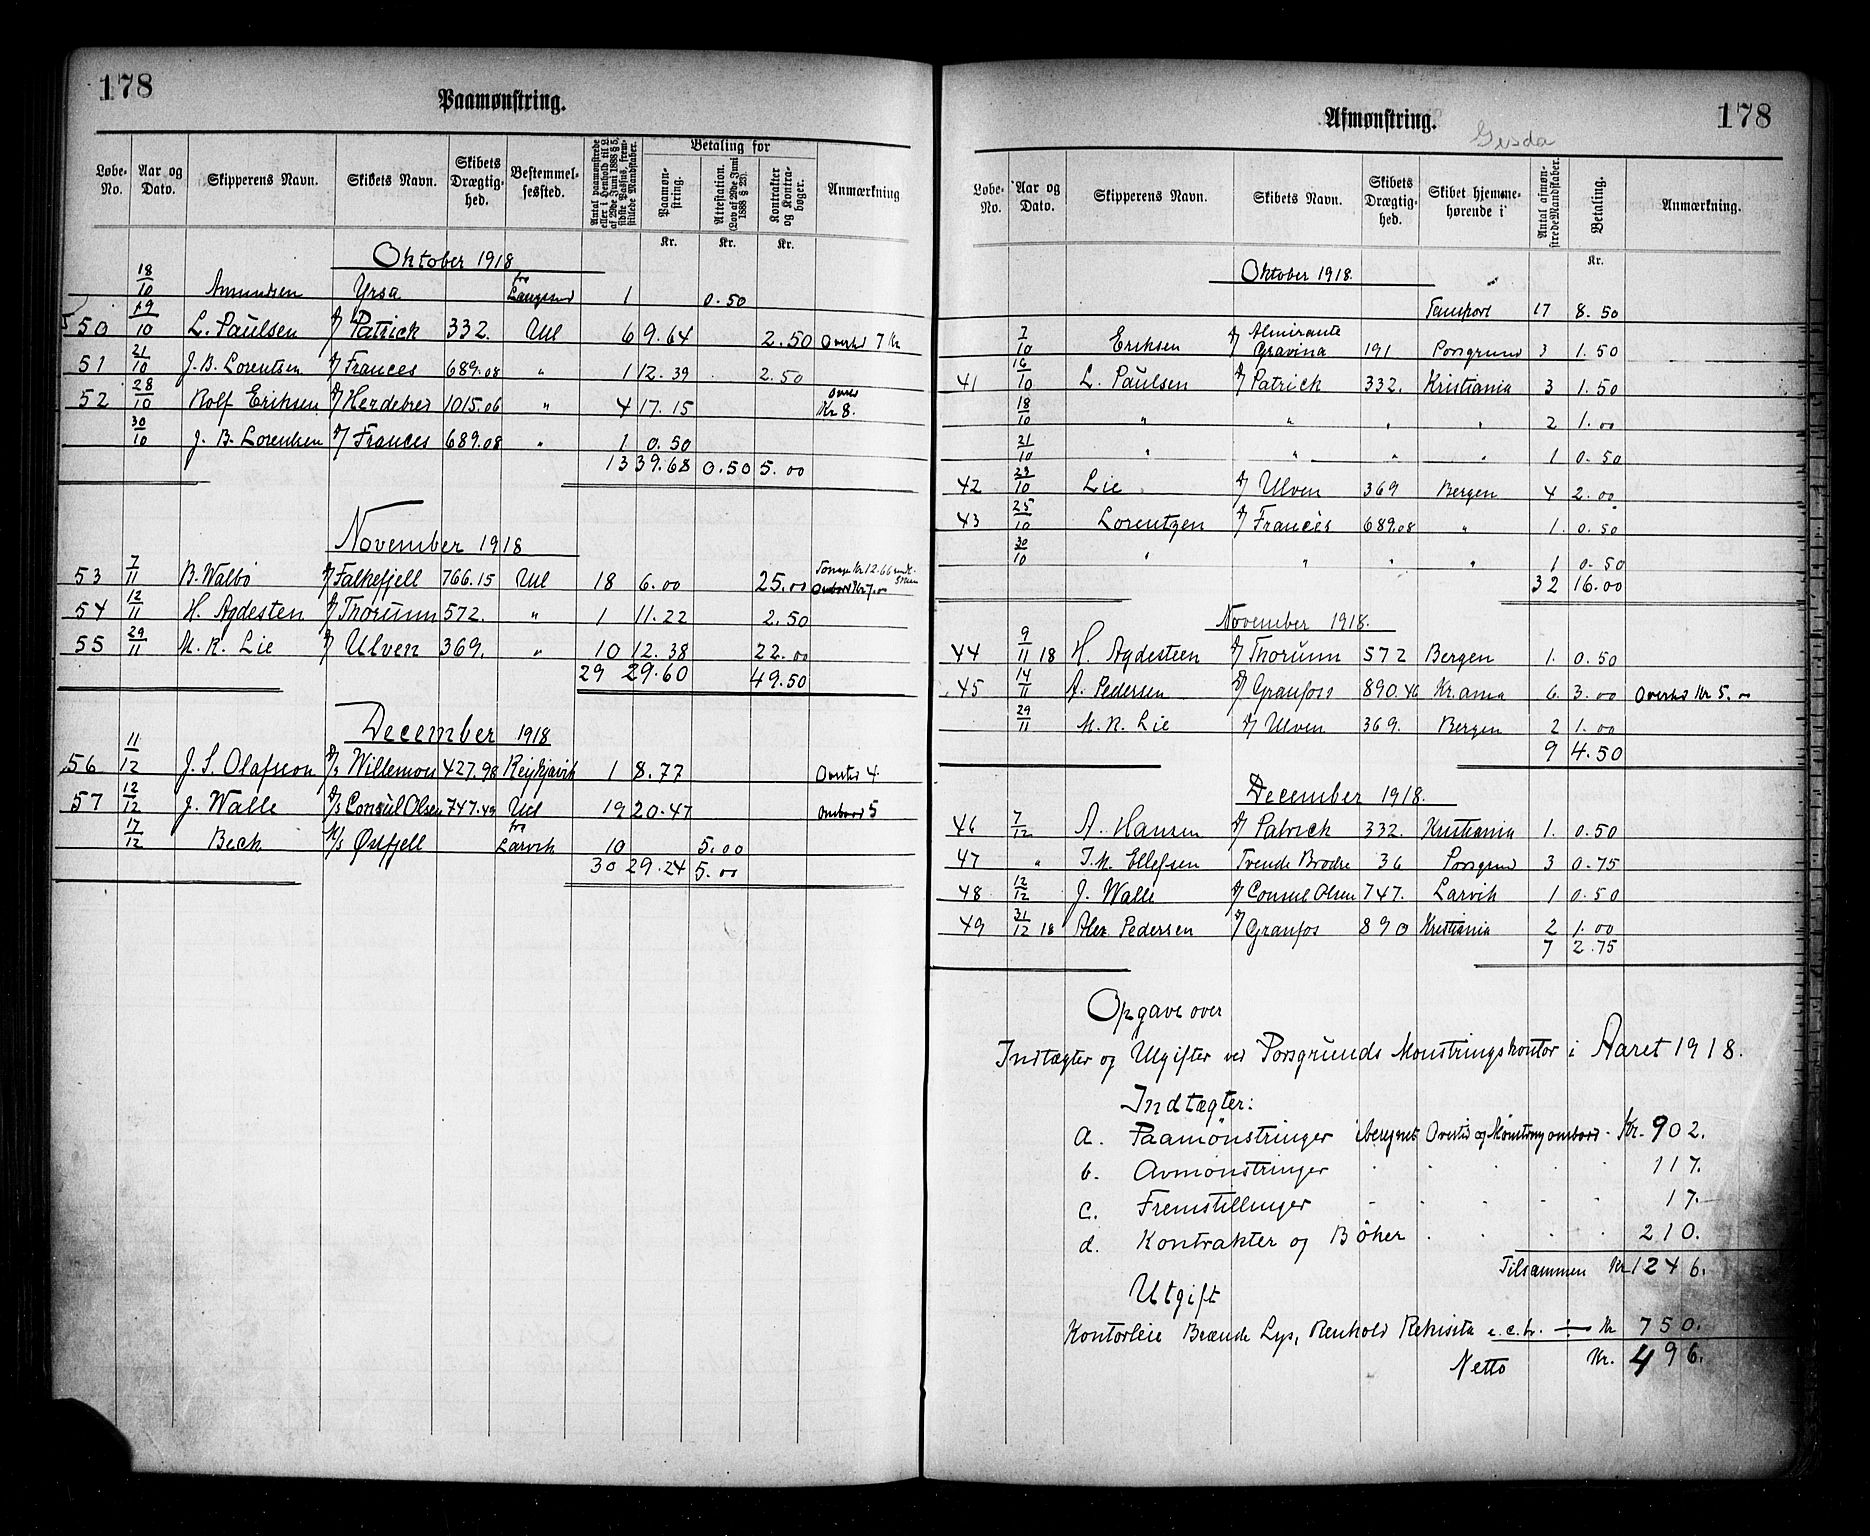 178
Paamønstring.
Løbe-No. Aar og Dato. Skipperens Navn. Skibets Navn. Skibets Drægtig-hed. Bestemmel-sessted. Antal paamønstrede eller i Henhold til L. af 29de Juni 1888 § 5, sidste Passus, frem-stillede Mandskaber. Betaling for Paamøn-string. Attestation. (Lov af 29de Juni 1888 § 23). Kontrakter og Kontra-bøger. Anmærkning
Kr. Kr. Kr.
Oktober 1918
18/10 Amundsen Yrsa fra Langesund 1 0.50
50 19/10 L. Paulsen D/ Patrick 332. Utl 6 9.64 2.50 Overtid 7 Kr
51 21/10 J. B. Lorentsen D/ Frances 689.08 " 1 12.39 2.50
52 28/10 Rolf Eriksen D/ Herdebred 1015.06 " 4 17.15 Kr 8.
30/10 J. B. Lorentsen D/ Frances 689.08 " 1 0.50
13 39.68 0.50 5.00
November 1918
53 7/11 B. Walbø D/ Falkefjell 766.15 Utl 18 6.00 25.00 Ombord Kr 7.00
54 12/11 H. Agdesten D/ Thorunn 572. " 1 11.22 2.50
55 29/11 M. R. Lie D/ Ulven 369. " 10 12.38 22.00
29 29.60 49.50
December 1918
56 11/12 J. S. Olafsson D/s Willemoes 427.98 Reykjavik 1 8.77 Overtid 4
57 12/12 J. Walle D/s Consul Olsen 747.49 Utl 19 20.47 ombord 5
17/12 Beck M/s Østfjell fra Larvik 10 5.00
30 29.24 5.00
178
Afmønstring.
Løbe-No. Aar og Dato. Skipperens Navn. Skibets Navn. Skibets Drægtig-hed. Skibet hjemme-hørende i Antal afmøn-strede Mandskaber. Betaling. Anmærkning.
Kr.
Oktober 1918.
Transport 17 8.50
7/10 Eriksen D/ Almirante Gravina 191 Porsgrund 3 1.50
41 16/10 L. Paulsen D/ Patrick 332. Kristiania 3 1.50
18/10 " " " " 2 1.00
21/10 " " " " 1 0.50
42 23/10 Lie D/ Ulven 369 Bergen 4 2.00
43 25/10 Lorentzen D/ Frances 689.08 " 1. 0.50
30/10 " " " " 1 0.50
32 16.00
November 1918.
44 9/11 18 H. Agdesteen D/ Thorunn 572 Bergen 1. 0.50
45 14/11 A. Pedersen D/ Granfoss 890.46 Kr.ania 6. 3.00 Overtid Kr 5.00
29/11 M. R. Lie D/ Ulven 369. Bergen 2 1.00
9 4.50
December 1918.
46 7/12 A. Hansen D/ Patrick 332. Kristiania 1. 0.50
47 " T. M. Ellefsen Tvende Brødre 36 Porsgrund 3 0.75
48 12/12 J. Walle D/ Consul Olsen 747. Larvik 1 0.50
49 31/12 18 Alex Pedersen D/ Granfos 890 Kristiania 2 1.00
7 2.75
Opgave over
Indtægter og Utgifter ved Porsgrunds Mønstringskontor i Aaret 1918.
Indtægter:
a. Paamønstringer iberegnet Overtid og Mønstring ombord - Kr. 902.
b. Avmønstringer 117.
c. Fremstillinger 17.
d. Kontrakter og Bøker 210.
Tilsammen Kr 1246.
Utgift
Kontorleie Brænde Lys, Renhold Rekvisita e.c.t. ÷ Kr 750.
Netto Kr. 496.